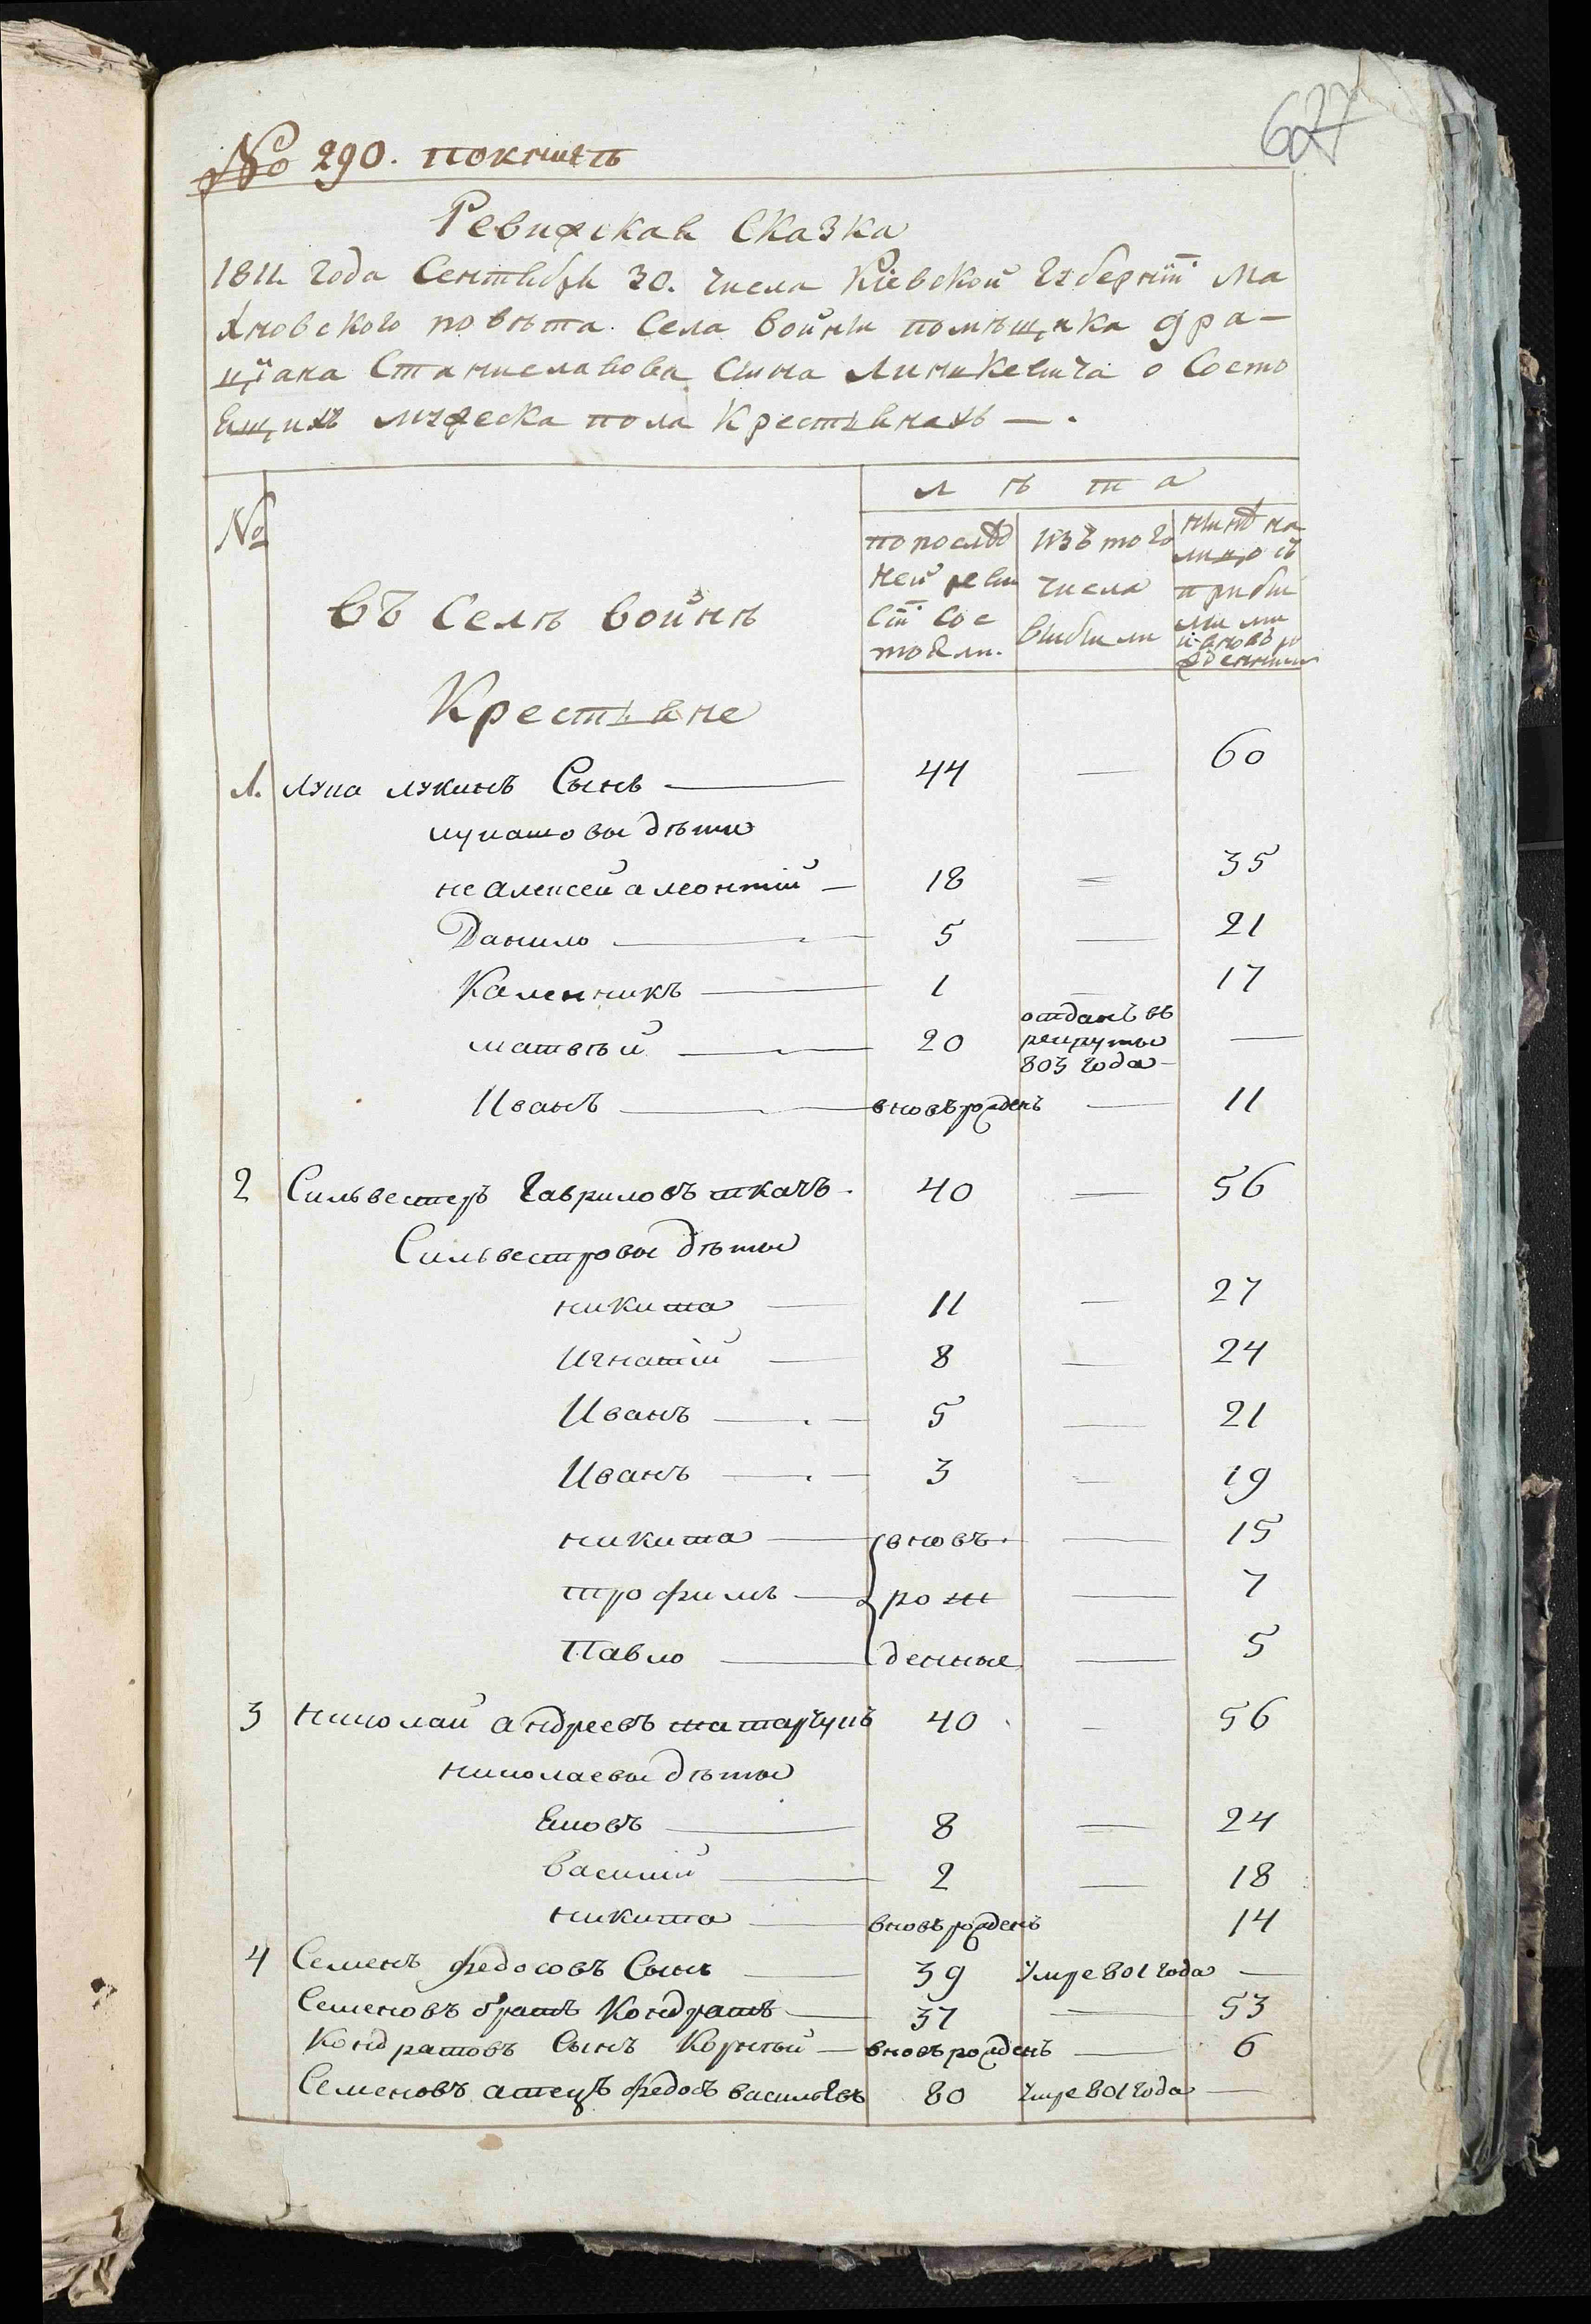 627
№ 290.
Ревижская Сказка
1811 года Сентября 30. числа Кіевской Губерніи Ма
хновского повѣта Села Войни помѣщика Фра-
нцїака Станиславова Сина Линкевича о Состо
ящихъ мужеска пола Крестьянахъ —.
Лѣта
№
Въ Селѣ Войнѣ
по послѣд
ней реви
сіи сос
тояли.
изъ того
числа
вибили
нинѣ на
лицо съ
прибы
лими
и вновь ро
жденними
Крестьяне
1. Лука лукинъ Сынъ — 44 — 60
лукашовы дѣти
не алексей а леонтій — 18 — 35
Данило — 5 — 21
Каленникъ — 1 — 17
матвѣй — 20 отданъ въ рекруты 803 года —
Иванъ — вновь рожденъ — 11
2 Сильвестеръ Гавриловъ ткачъ. 40 — 56
Сильвестровы дѣты
никита — 11 — 27
Игнатій — 8 — 24
Иванъ — 5 — 21
Иванъ — 3 — 19
никита — вновъ — 15
трофимъ — рож — 7
Павло — денные — 5
3 николай андреевъ 40 — 56
николаевы дѣты
Яковъ — 8 — 24
василий — 2 — 18
никита — вновь рожденъ 14
4 Семенъ федосовъ Сынъ — 39 Умре 801 года —
Семеновъ братъ Кондратъ — 37 — 53
Кондратовъ Сынъ Корнѣй — вновь рожденъ — 6
Семеновъ атецъ федосъ васильевъ 80 Умре 801 года —